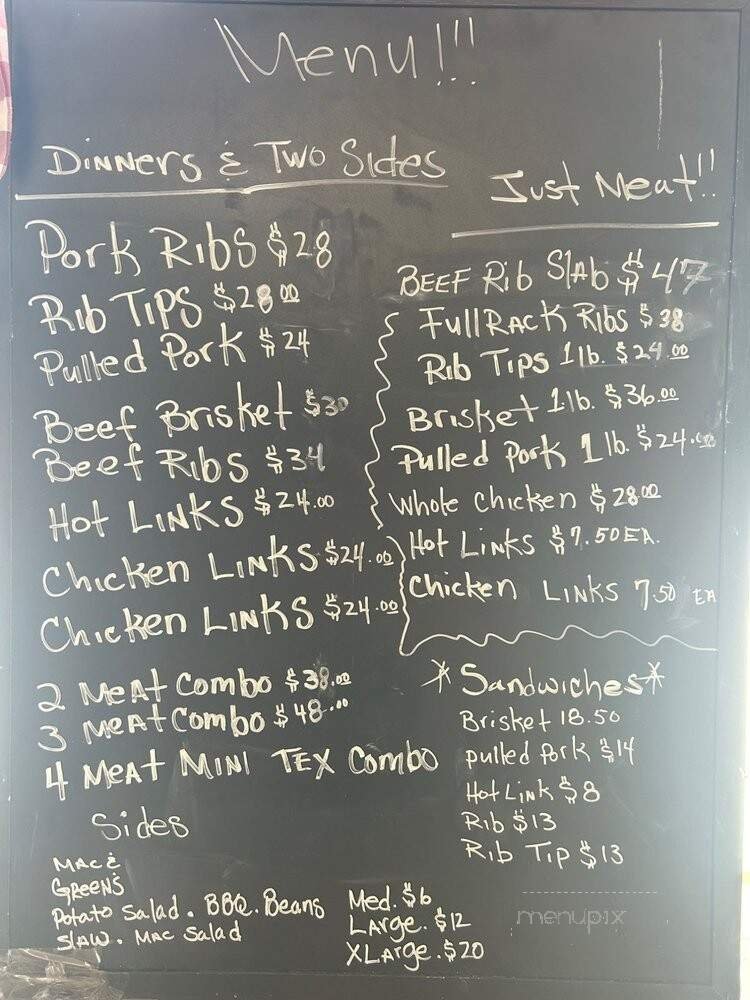 Menu!!!
Dinners & Two Sides
Pork Ribs $28
Rib Tips $28.00
Pulled Pork $24
Beef Brisket $30
Beef Ribs $34
Hot Links $24.00
Chicken Links $24.00
Chicken Links $24.00
2 Meat Combo $38.00
3 Meat Combo $48.00
4 Meat Mini Tex Combo
Just Meat!!
Beef Rib Slab $47
Full Rack Ribs $38
Rib Tips 1lb. $24.00
Brisket 1lb. $36.00
Pulled Pork 1lb. $24.00
Whole Chicken $28.00
Hot Links $7.50 EA.
Chicken Links 7.50 EA
*Sandwiches*
Brisket 18.50
Pulled Pork $14
Hot Link $8
Rib $13
Rib Tip $13
Sides
Mac &
Greens
Potato Salad. BBQ. Beans
Slaw. Mac Salad
Med. $6
Large. $12
XLarge. $20
menupix